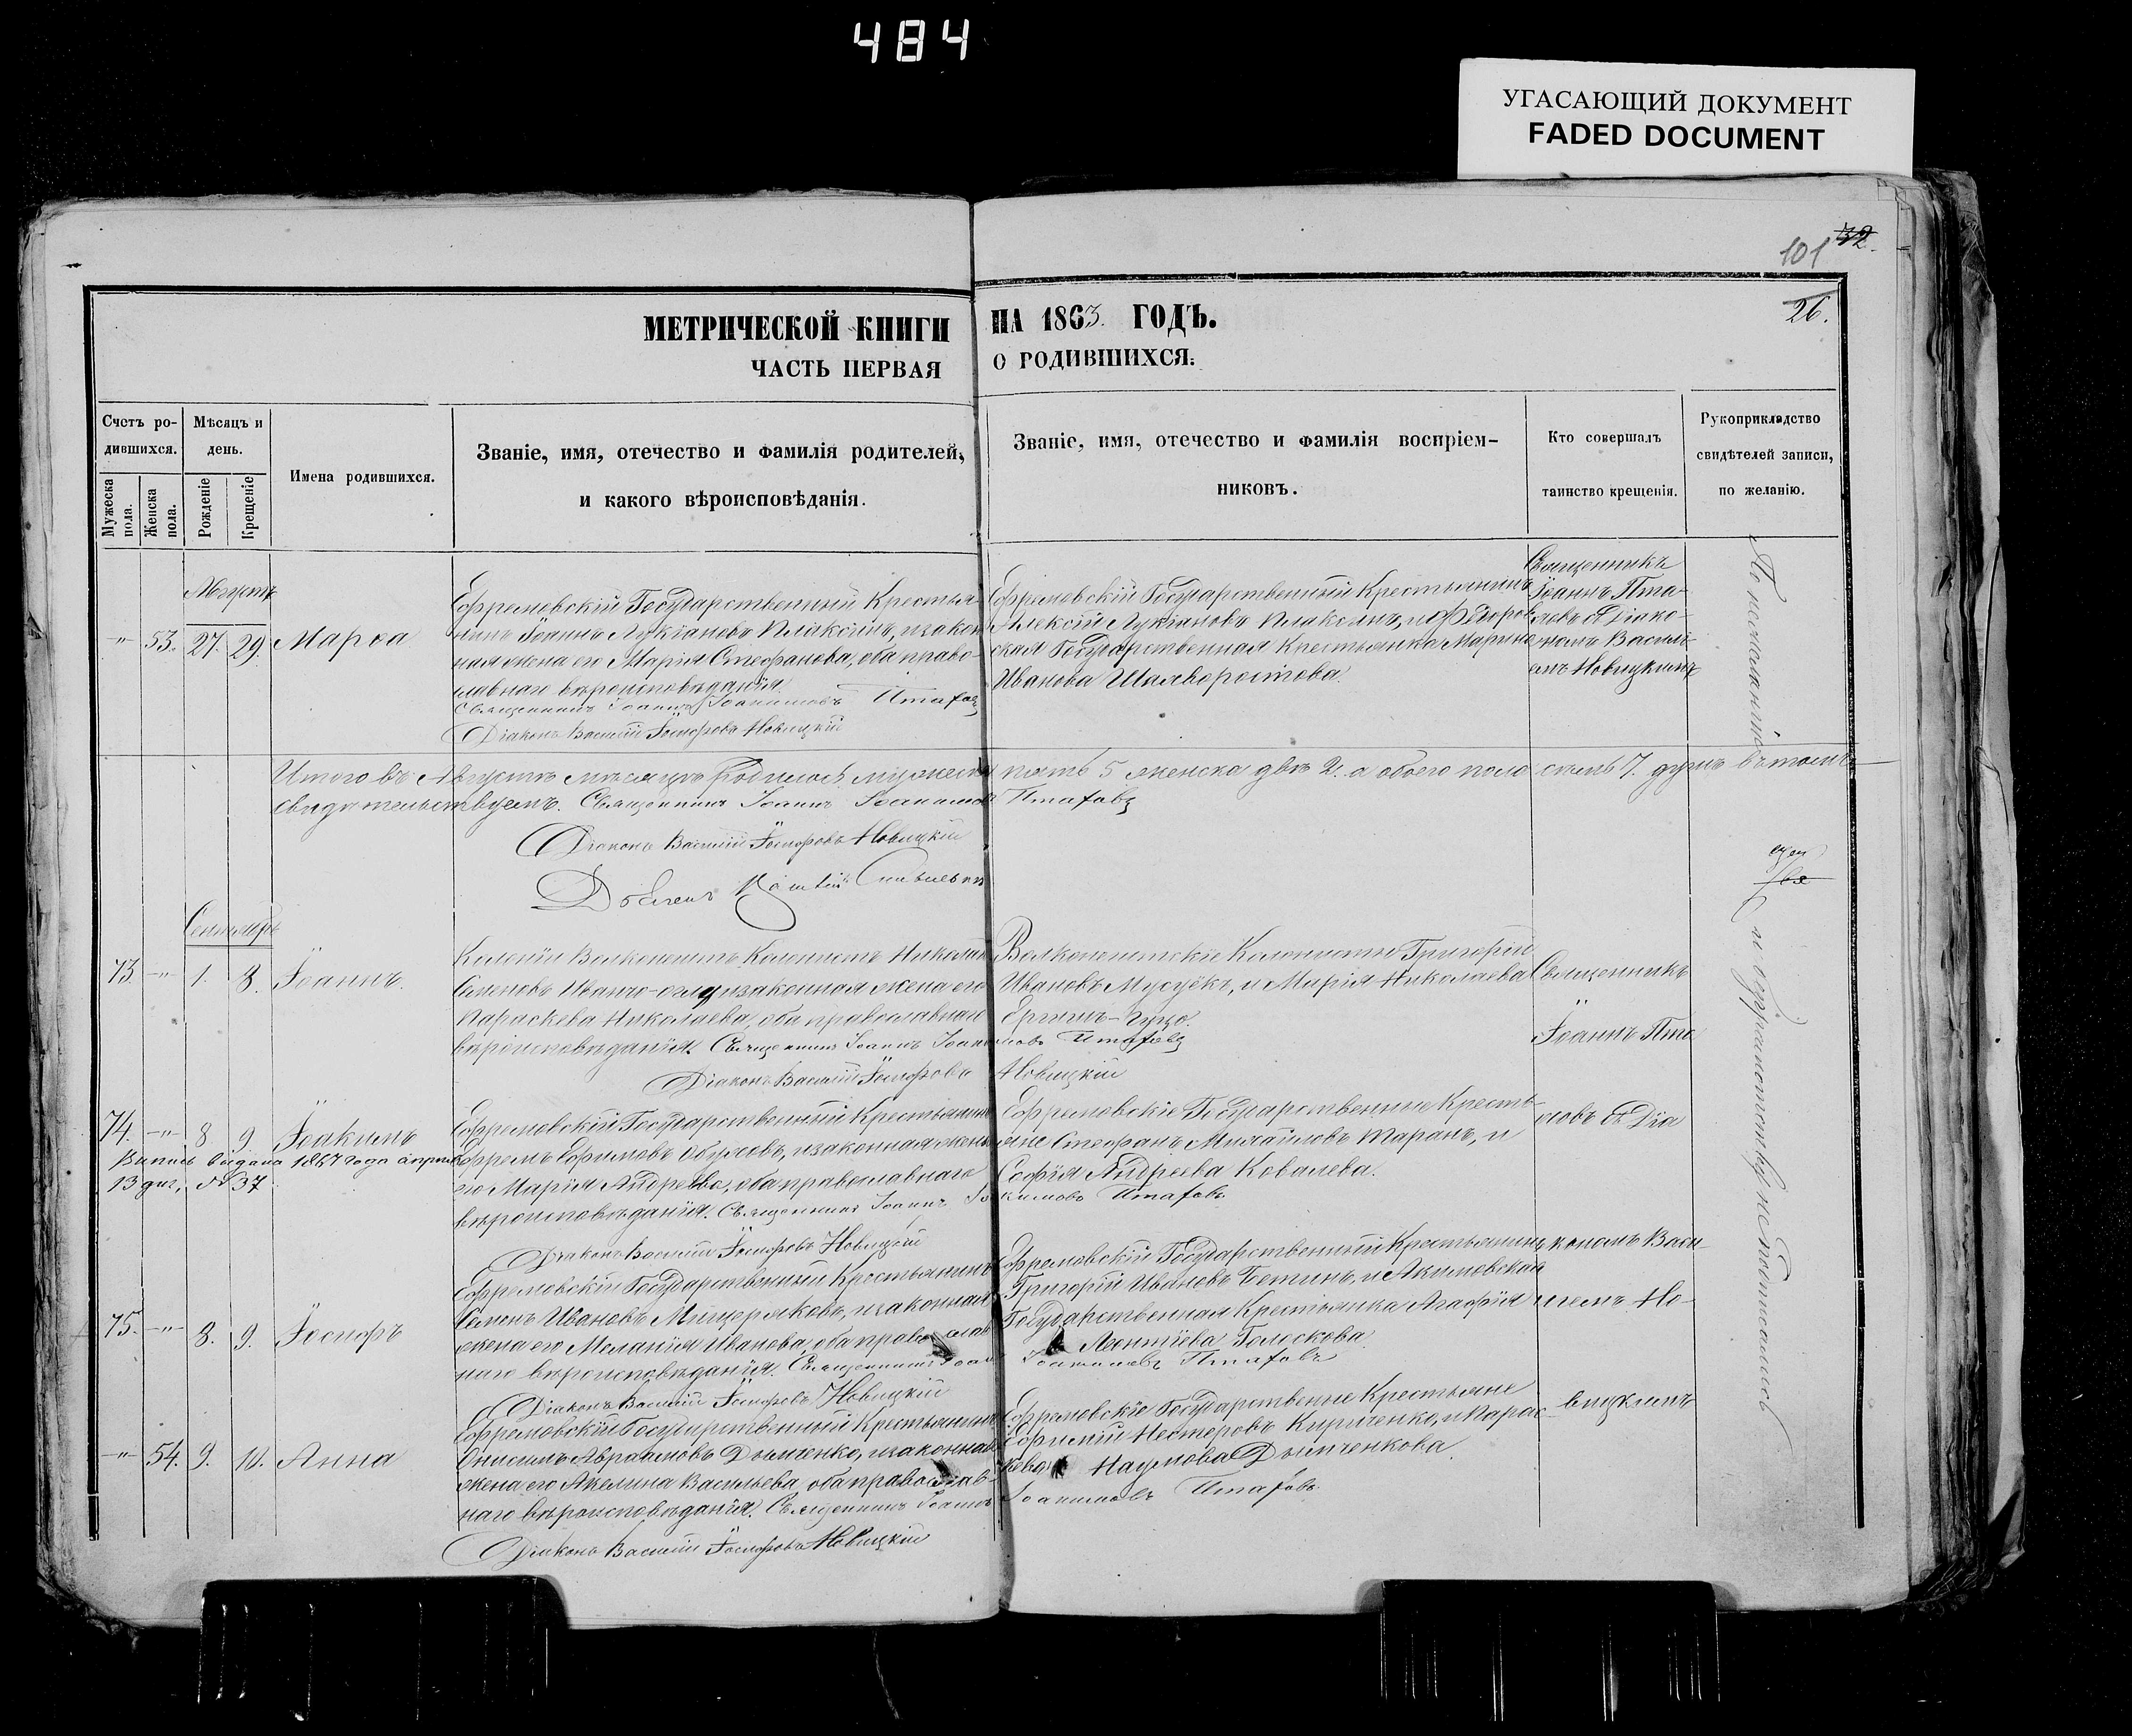 484
УГАСАЮЩИЙ ДОКУМЕНТ
FADED DOCUMENT
101 32.
26.
МЕТРИЧЕСКОЙ КНИГИ НА 1863. ГОДЪ.
ЧАСТЬ ПЕРВАЯ О РОДИВШИХСЯ.
Счетъ родившихся.
Мужеска пола.
Женска пола.
Мѣсяцъ и день.
Рожденіе
Крещеніе
Имена родившихся.
Званіе, имя, отечество и фамилія родителей,
и какого вѣроисповѣданія.
Званіе, имя, отечество и фамилія воспріем-
никовъ.
Кто совершалъ
таинство крещенія.
Рукоприкладство
свидѣтелей записи,
по желанію.
Августъ
-"- 53. 27. 29. Марѳа
Ефремовскій Государственный Крестья-
нинъ Іоаннъ Лукіановъ Плаксинъ, и закон
ная жена его Марія Стефанова, оба право-
славнаго вѣроисповѣданія.
Священникъ Іоаннъ Іоакимовъ Птаховъ
Діаконъ Василій Іосифовъ Новицкій
Ефремовскій Государственный Крестьянинъ
Алексій Лукіановъ Плаксинъ, и Ѳедоров
ская Государственная Крестьянка Марина
Иванова Шалворостова.
Священникъ
Іоаннъ Пта-
ховъ съ Діако-
номъ Василі-
емъ Новицкимъ
Итого въ Августѣ мѣсяцѣ родилось мужеска пять 5 женска двѣ 2. а обоего пола семь 7. душъ въ томъ
свидѣтельствуемъ. Священникъ Іоаннъ Іоакимовъ Птаховъ
Діаконъ Василій Іосифовъ Новицкій
Сентябрь
73. -"- 1. 8. Іоаннъ.
Колоніи Волконештъ Колонистъ Николай
Семеновъ Иванчо-оглу и законная жена его
Параскева Николаева, оба православнаго
вѣроисповѣданія. Священникъ Іоаннъ Іоакимовъ Птаховъ
Діаконъ Василій Іосифовъ Новицкій
Волконештскіе Колонисты Григорій
Ивановъ и Марія Николаева
Священникъ
Іоаннъ Пта
74. -"- 8 9. Іоакимъ
Выпись выдана 1867 года апрѣля
13 дня, № 37
Ефремовскій Государственный Крестьянинъ
Ефремъ Ефимовъ и законная жена
его Марія Андреева, оба православнаго
вѣроисповѣданія. Священникъ Іоаннъ Іоакимовъ Птаховъ
Діаконъ Василій Іосифовъ Новицкій
Ефремовскіе Государственные Кресть-
яне Стефанъ Михайловъ Таранъ, и
Софія Андреева Ковалева.
ховъ съ Діа
75. -"- 8. 9. Іосифъ
Ефремовскій Государственный Крестьянинъ
Семенъ Ивановъ Мищеряковъ, и законная
жена его Меланія Иванова, оба православ
наго вѣроисповѣданія. Священникъ Іоаннъ Іоакимовъ Птаховъ
Діаконъ Василій Іосифовъ Новицкій
Ефремовскій Государственный Крестьянинъ
Григорій Ивановъ Бетинъ, и Акимовская
Государственная Крестьянка Агафія
Леонтіева Голоскова.
кономъ Васи-
ліемъ Но-
-"- 54. 9. 10. Анна
Ефремовскій Государственный Крестьянинъ
Онисимъ Авраамовъ Дымченко, и законная
жена его Акелина Васильева, оба православ-
наго вѣроисповѣданія. Священникъ Іоаннъ Іоакимовъ Птаховъ
Діаконъ Василій Іосифовъ Новицкій
Ефремовскіе Государственные Крестьяне
Ефимій Нестеровъ Кириченко, и Парас-
кева Наумова Дымченкова
вицкимъ
По нежеланію
и неграмотству не подписались